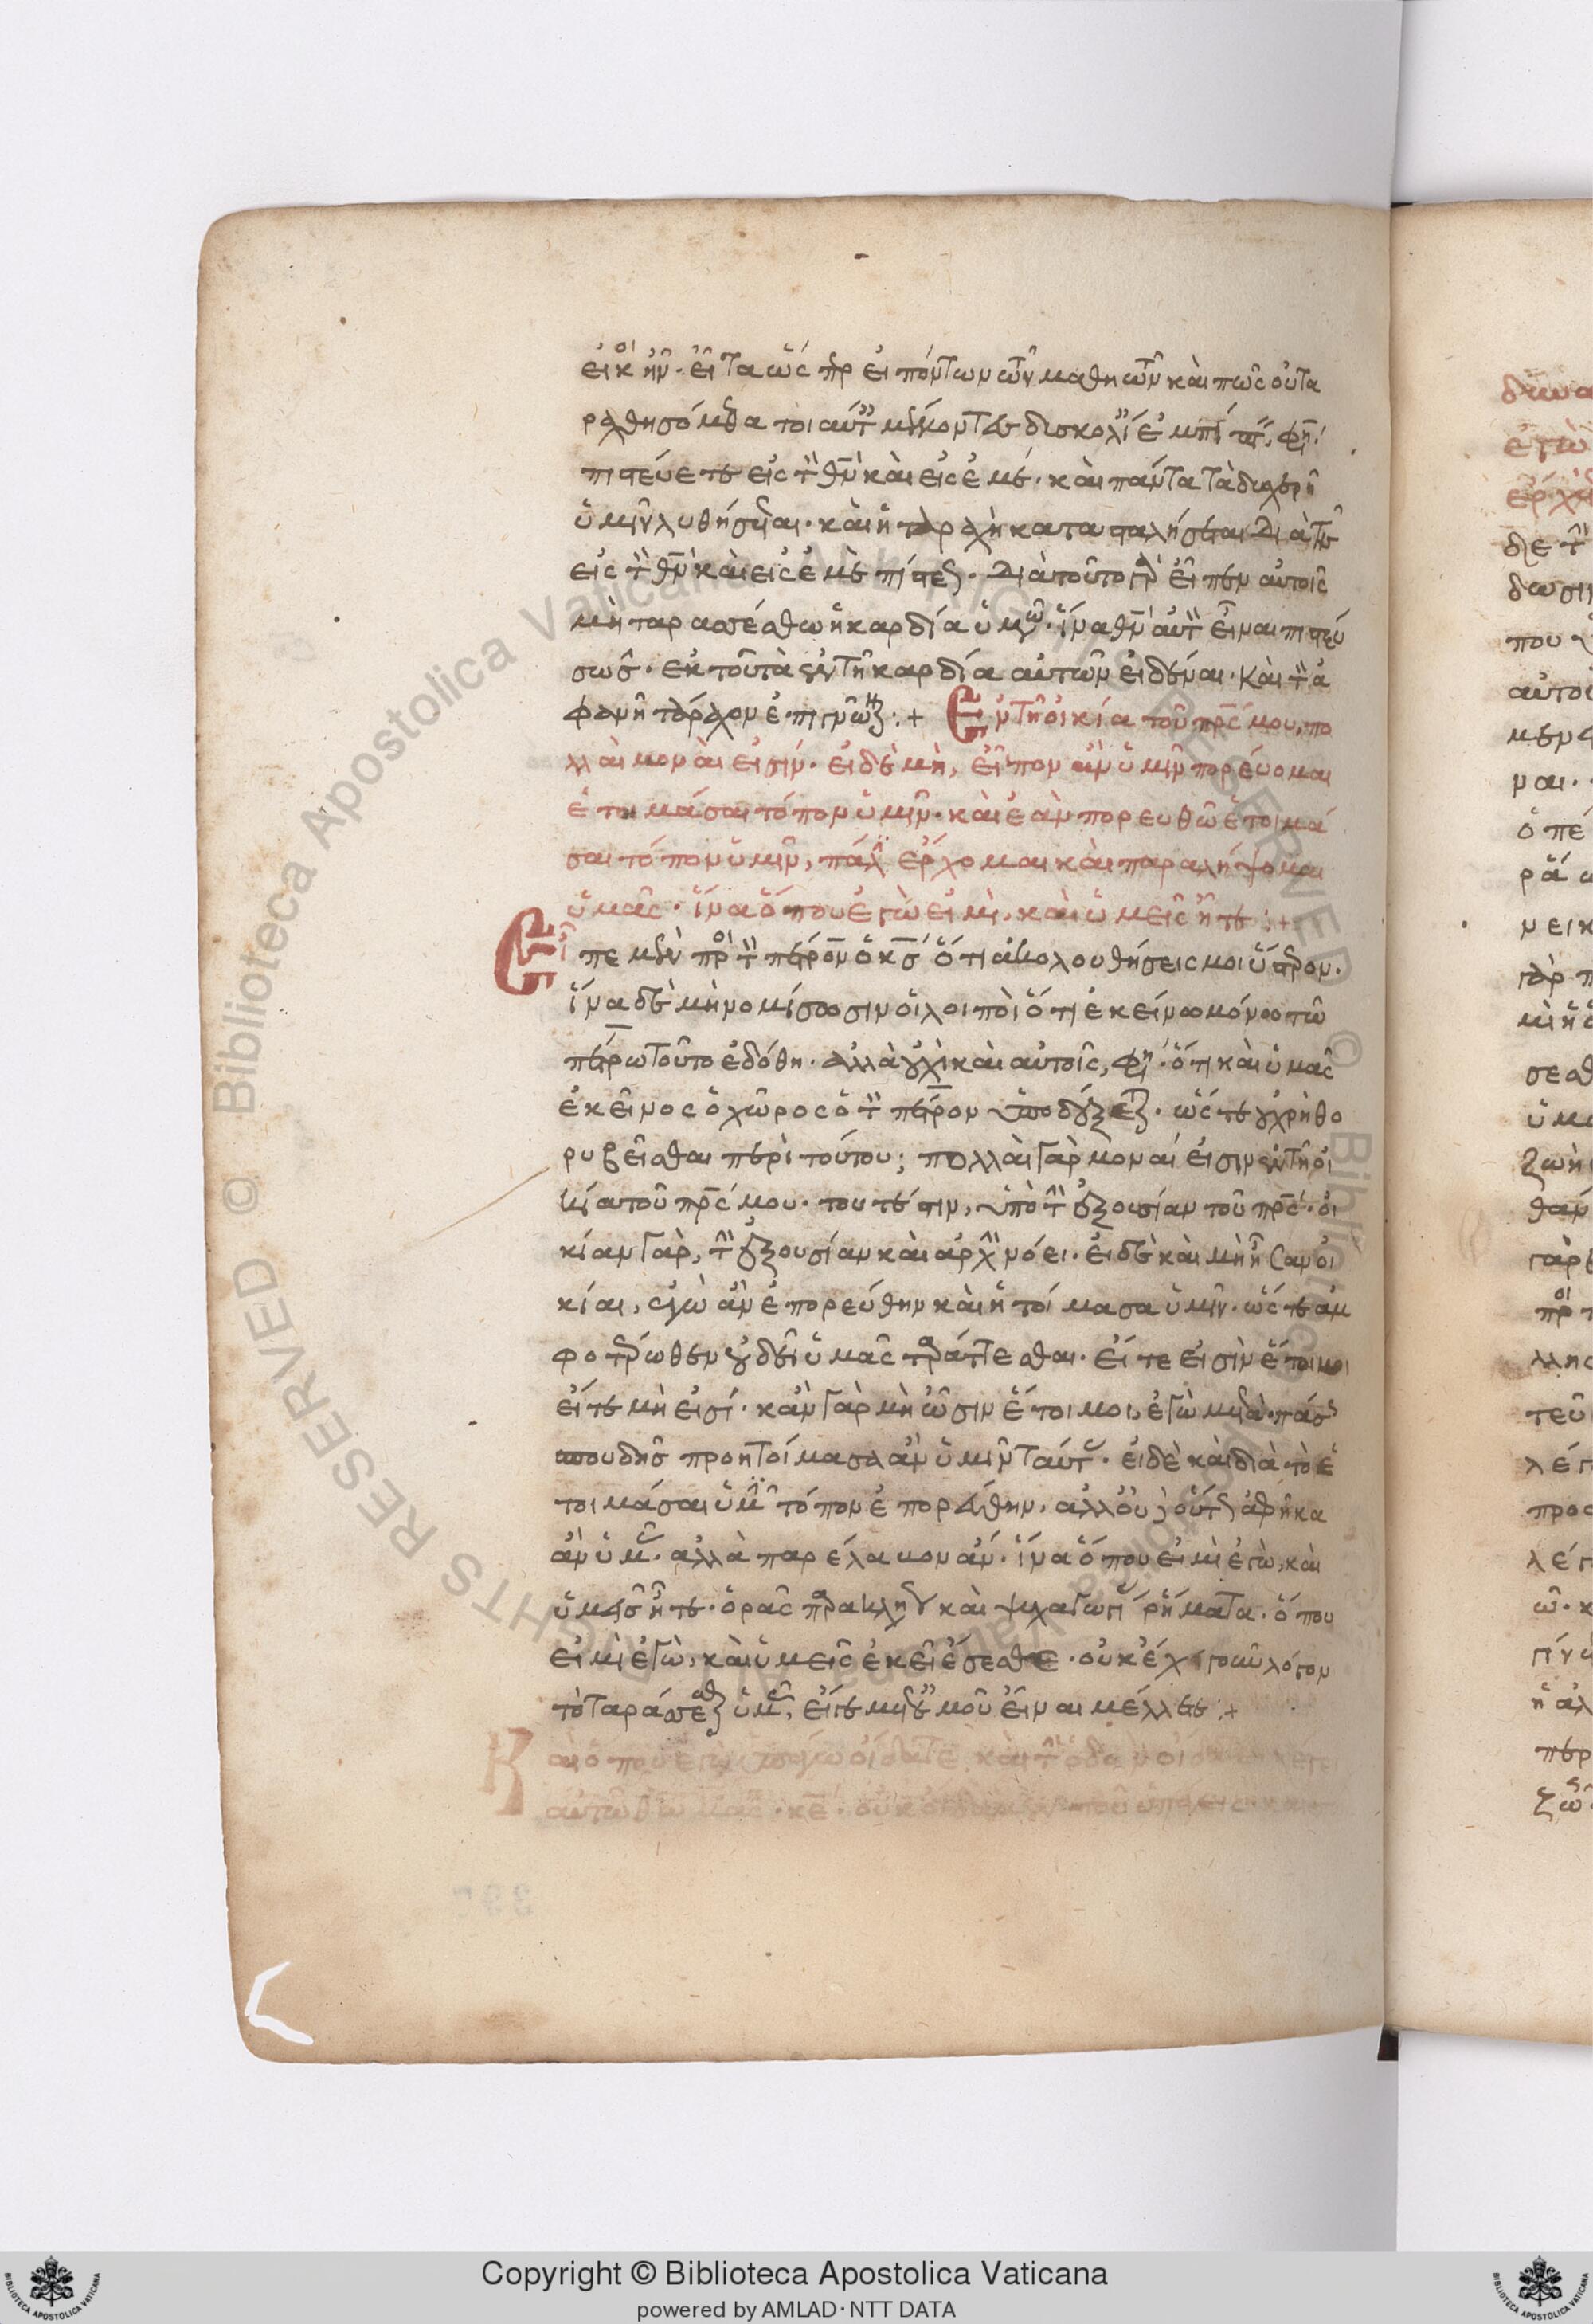 εἰκὸς ἦν. εἶτα ὥσπερ εἰπόντων τῶν μαθητῶν καὶ πῶς οὐ τα
ραχθησόμεθα τοιαύτης μελλούσης δυσκολίας ἐμπίπτειν, φησί·
πιστεύετε εἰς τὸν θν καὶ εἰς ἐμέ. καὶ πάντα τὰ δυσχερῆ
ὑμῖν λυθήσεται. καὶ ἡ ταραχὴ κατασταλήσεται διὰ τῆς
εἰς τὸν θν καὶ εἰς ἐμὲ πίστεως. διὰ τοῦτο γὰρ εἶπεν αὐτοῖς
μὴ ταρασσέσθω ἡ καρδία ὑμῶν. ἵνα θν αὐτὸν εἶναι πιστεύ
σωσιν. ἐκ τοῦ τὰ ἐν τῇ καρδία αὐτῶν εἰδέναι. καὶ τὸν ἀ
φανῆ τάραχον ἐπιγνῶναι :+ Ἐν τῇ οἰκία τοῦ πρς μου, πο
λλαὶ μοναὶ εἰσίν. εἰ δὲ μὴ, εἶπον ἂν ὑμῖν πορεύομαι
ἑτοιμάσαι τόπον ὑμῖν. καὶ ἐὰν πορευθῶ ἑτοιμά
σαι τόπον ὑμῖν, πάλιν ἔρχομαι καὶ παραλήψομαι
ὑμᾶς. ἵνα ὅπου ἐγὼ εἰμὶ, καὶ ὑμεῖς ἦτε :+
Εἶπε μὲν πρὸς τὸν πέτρον ὁ κς ὅτι ἀκολουθήσεις μοι ὕστερον.
ἵνα δὲ μὴ νομίσωσιν οἱ λοιποὶ ὅτι ἐκείνω μόνω τῶ
πέτρω τοῦτο ἐδόθη. ἀλλὰ οὐχὶ καὶ αὐτοῖς, φησὶν ὅτι καὶ ὑμᾶς
ἐκεῖνος ὁ χῶρος ὁ τὸν πέτρον ὑποδέξεται. ὥστε οὐ χρὴ θο
ρυβεῖσθαι περὶ τούτου; πολλαὶ γὰρ μοναί εἰσιν ἐν τῇ οἰ
κία τοῦ πρς μου. τουτέστιν, ὑπὸ τὴν ἐξουσίαν τοῦ πρς. οἰ
κίαν γὰρ, τὴν ἐξουσίαν καὶ ἀρχὴν νόει. εἰ δὲ καὶ μὴ ἦσαν οἰ
κίαι, ἐγὼ ἂν ἐπορεύθην καὶ ἡτοίμασα ὑμῖν. ὥστε ἀμ
φοτέρωθεν οὐ δεῖ ὑμᾶς ταράττεσθαι. εἴτε εἰσὶν ἕτοιμοι
εἴτε μὴ εἰσί. κἂν γὰρ μὴ ὦσιν ἕτοιμοι, ἐγὼ μετὰ πάσης
σπουδῆς προητοίμασα ἂν ὑμῖν ταύτας. εἰ δὲ καὶ διὰ τὸ ἑ
τοιμάσαι ὑμῖν τόπον ἐπορεύθην, ἀλλ' οὐδ' οὕτως ἀφῆκα
ἂν ὑμᾶς. ἀλλὰ παρέλαβον ἄν. ἵνα ὅπου εἰμὶ ἐγὼ, καὶ
ὑμεῖς ἦτε. ὁρᾶς παρακλητικὰ καὶ ψυχαγωγὰ ῥήματα. ὅπου
εἰμὶ ἐγὼ, καὶ ὑμεῖς ἐκεῖ ἔσεσθε. οὐκ ἔχει γοῦν λόγον
τὸ ταράσσεσθαι ὑμᾶς, εἴτε μετ' ἐμοῦ εἶναι μέλλετε :+
Καὶ ὅπου ἐγὼ ὑπάγω οἴδατε καὶ τὴν ὁδὸν οἴδατε λέγει
αὐτῶ θωμᾶς. κε. οὐκ οἴδαμεν ποῦ ὑπάγεις. καὶ